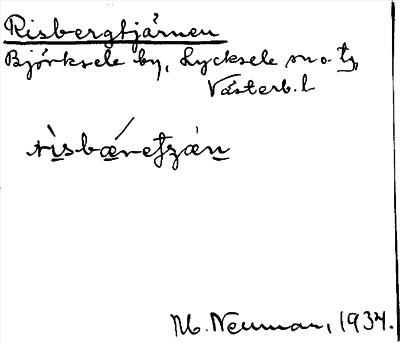 Risbergtjärnen
Björksele by, Lycksele sn o. tg,
Västerb. l
M. Neuman, 1934.